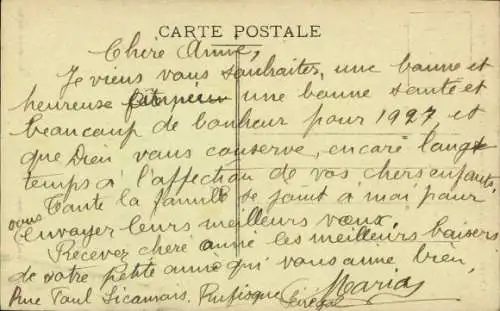 CARTE POSTALE
Chère Anne,
Je viens vous souhaiter, une bonne et
heureuse une bonne santé et
beaucoup de bonheur pour 1927, et
que Dieu vous conserve, encore longs
temps à l'affection de vos chers enfants.
Toute la famille se joint à moi pour
vous
envoyer leurs meilleurs vœux.
Recevez chère anne les meilleurs baisers
de votre petite amie qui vous aime bien,
Rue Paul Sicamois. Rufisque Sénégal Maria